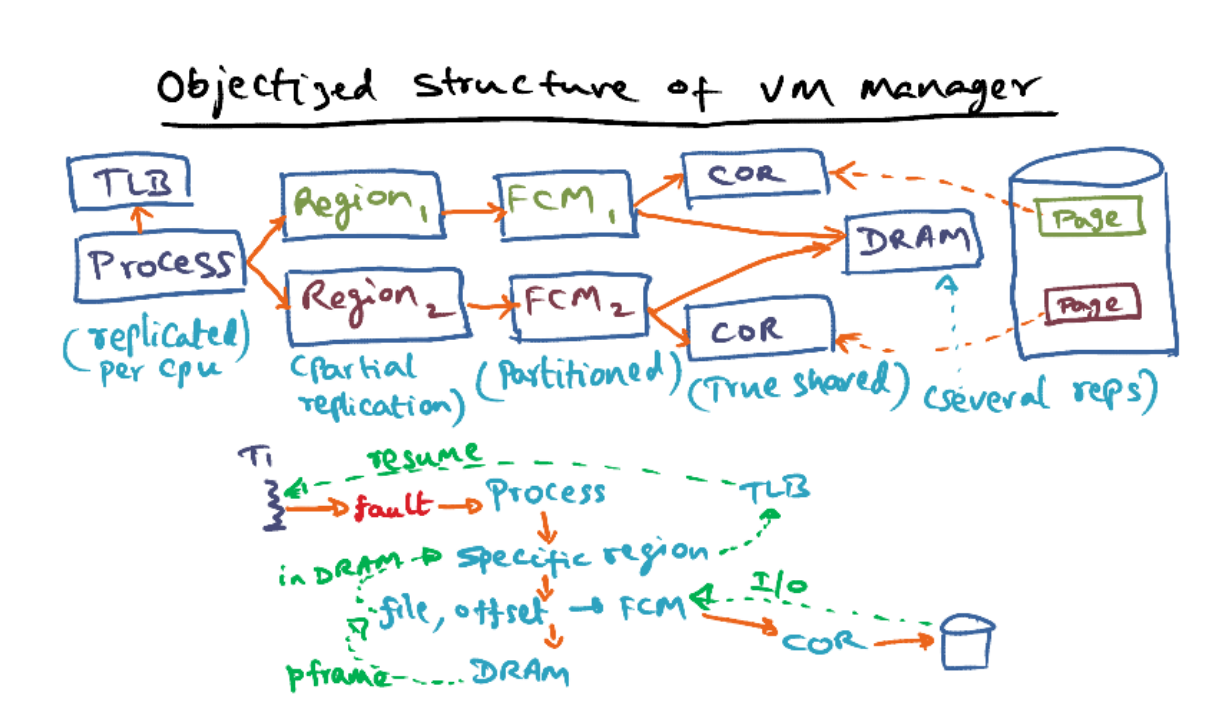 Objectized structure of VM manager
TLB
Process
(replicated)
per cpu
Region1
Region2
(Partial
replication)
FCM1
FCM2
(Partitioned)
COR
COR
(True shared)
DRAM
(several reps)
Page
Page
T1
resume
fault
Process
TLB
in DRAM
specific region
I/O
file, offset → FCM
COR
pframe
DRAM